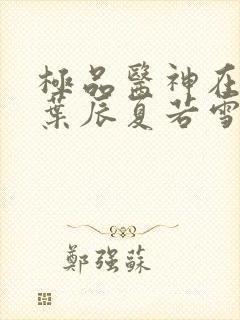 極品醫神在
葉辰夏若雪
鄭強蘇